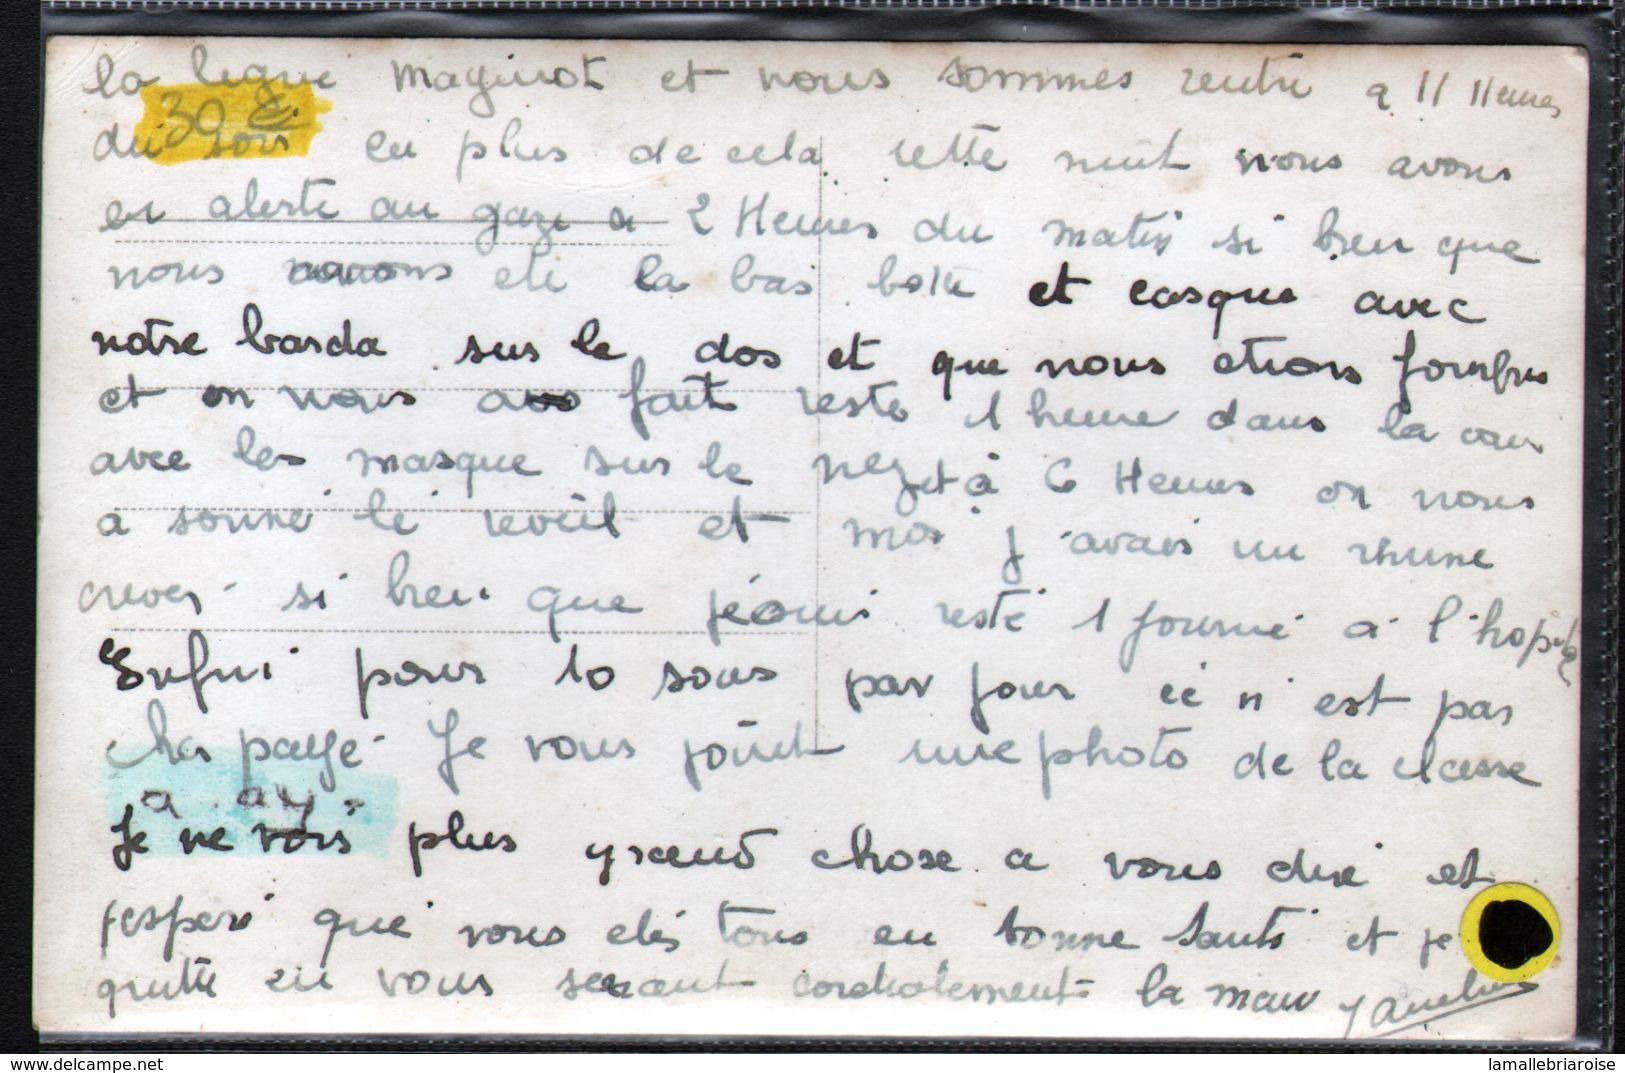 la ligne maginot et nous sommes rentre a 11 Heures
30 €.
du soir en plus de cela cette nuit nous avons
eu alerte au gaze a 2 Heures du matin si bien que
nous avons ete la bas botte et casque avec
notre barda sur le dos et que nous etions fourbus
et on nous a fait reste 1 heure dans la cour
avec les masque sur le nez et à 6 Heures on nous
a sonné le reveil et moi j'avais un rhume
crever si bien que je suis resté 1 journé a l'hopital
Enfin pour 10 sous par jour ce n'est pas
cher payé. Je vous joint une photo de la classe
a . ay.
Je ne vois plus grand chose a vous dire et
j'esper que vous etes tous en bonne santé et je
quitte en vous serrant cordialement la main
lamallebriaroise - delcampe.net